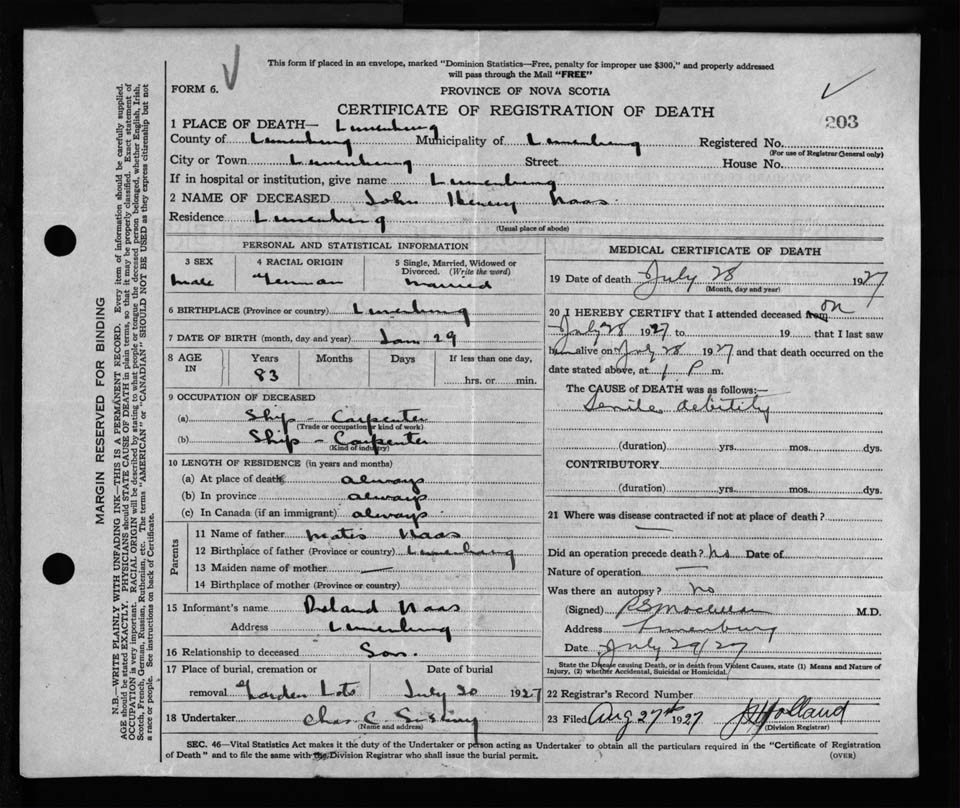 This form if placed in an envelope, marked "Dominion Statistics—Free, penalty for improper use $300," and properly addressed
will pass through the Mail "FREE"
FORM 6.
PROVINCE OF NOVA SCOTIA
CERTIFICATE OF REGISTRATION OF DEATH
203
1 PLACE OF DEATH— Lunenburg
County of Lunenburg Municipality of Lunenburg Registered No.
(For use of Registrar General only)
City or Town Lunenburg Street House No.
If in hospital or institution, give name Lunenburg
2 NAME OF DECEASED John Henery Naas
Residence Lunenburg
(Usual place of abode)
PERSONAL AND STATISTICAL INFORMATION
3 SEX 4 RACIAL ORIGIN 5 Single, Married, Widowed or
Divorced. (Write the word)
male German married
6 BIRTHPLACE (Province or country) Lunenburg
7 DATE OF BIRTH (month, day and year) Jan 29
8 AGE IN Years Months Days If less than one day,
83 hrs. or min.
9 OCCUPATION OF DECEASED
(a) Ship - Carpenter
(Trade or occupation or kind of work)
(b) Ship - Carpenter
(Kind of industry)
10 LENGTH OF RESIDENCE (in years and months)
(a) At place of death always
(b) In province always
(c) In Canada (if an immigrant) always
Parents
11 Name of father Naas
12 Birthplace of father (Province or country) Lunenburg
13 Maiden name of mother —
14 Birthplace of mother (Province or country)
15 Informant's name Naas
Address Lunenburg
16 Relationship to deceased Son.
17 Place of burial, cremation or Date of burial
removal Garden Lots July 30 1927
18 Undertaker Chas. C.
(Name and address)
MEDICAL CERTIFICATE OF DEATH
19 Date of death July 28 1927
(Month, day and year)
20 I HEREBY CERTIFY that I attended deceased from on
July 28 1927 to 19 that I last saw
him alive on July 28 1927 and that death occurred on
date stated above, at 1 P m.
The CAUSE of DEATH was as follows:—
Senile debility
(duration) yrs. mos. dys.
CONTRIBUTORY
(duration) yrs. mos. dys.
21 Where was disease contracted if not at place of death?
—
Did an operation precede death? no Date of
Nature of operation —
Was there an autopsy? no
(Signed) M.D.
Address Lunenburg
Date July 29/27
State the Disease causing Death, or in death from Violent Causes, state (1) Means and Nature of
Injury, (2) whether Accidental, Suicidal or Homicidal.
22 Registrar's Record Number
23 Filed Aug 27th 1927 Holland
(Division Registrar)
SEC. 46—Vital Statistics Act makes it the duty of the Undertaker or person acting as Undertaker to obtain all the particulars required in the "Certificate of Registration
of Death" and to file the same with the Division Registrar who shall issue the burial permit. (OVER)
MARGIN RESERVED FOR BINDING
N.B.—WRITE PLAINLY WITH UNFADING INK—THIS IS A PERMANENT RECORD. Every item of information should be carefully supplied.
AGE should be stated EXACTLY. PHYSICIANS should STATE CAUSE OF DEATH in plain terms, so that it may be properly classified. Exact statement of
OCCUPATION is very important. RACIAL ORIGIN will be described by stating to what people or tongue the deceased person belonged, whether English, Irish,
Scotch, French, German, Russian, Ruthenian, etc. The terms "AMERICAN" or "CANADIAN" SHOULD NOT BE USED as they express citizenship but not
a race or people. See instructions on back of Certificate.